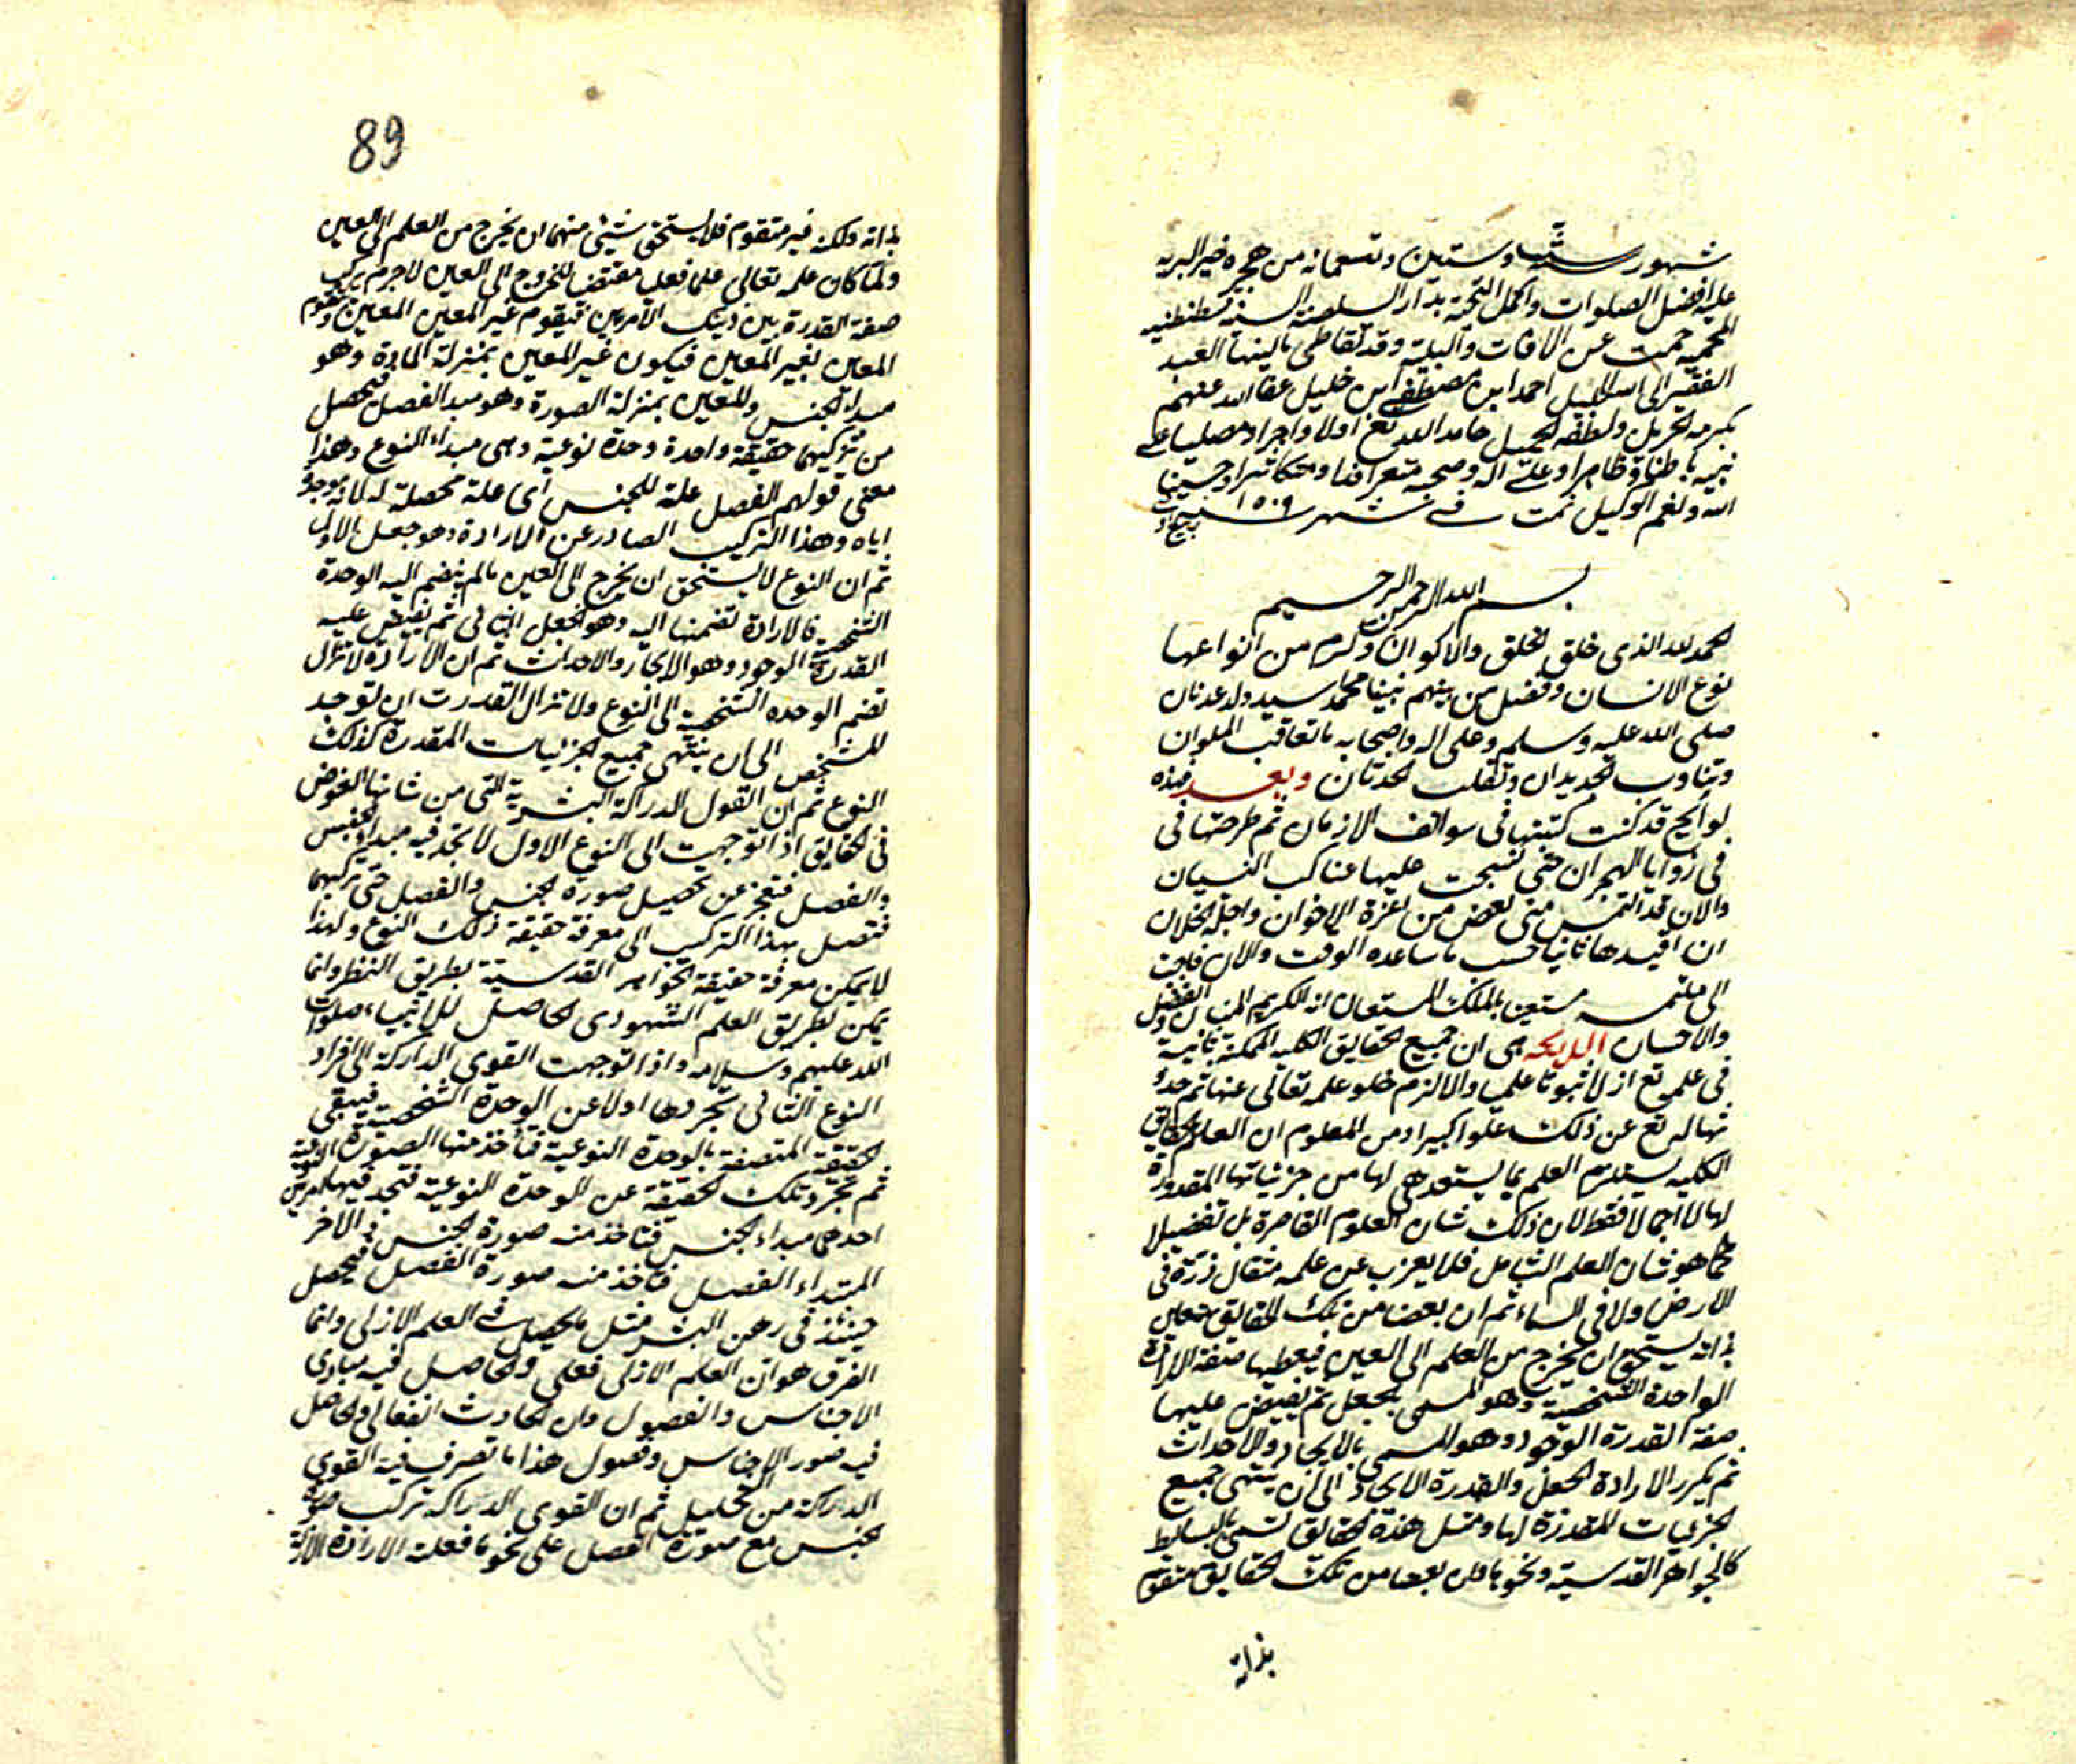 شهور سنة ست وستين وتسعمائه من هجرة خير البريه
عليه افضل الصلوات واكمل التحية بدار السلطنة السنية قسطنطنيه
المحميه حميت عن الافات والبلية وقد تعاطى تاليفها العبد
الفقير الى الله الجليل احمد ابن مصطفى ابن خليل عفا الله عنهم
بكرمه الجزيل ولطفه الجميل حامدا لله تع اولا واخرا ومصليا على
نبيه باطنا وظاهرا وعلى اله وصحبه متعرافدا ومتكاثرا وحسبنا
الله ونعم الوكيل تمت في شهر ربيع سنه ١٥٠٩
بسم الله الرحمن الرحيم
الحمد لله الذى خلق الخلق والاكوان وكرم من انواعها
نوع الانسان وفضل من بينهم نبينا محمد سيد ولد عدنان
صلى الله عليه وسلم وعلى اله واصحابه ما تعاقب الملوان
وتناوب الجديدان وتقلب الحدثان وبعد فهذه
لوايح قد كنت كتبتها فى سوالف الازمان ثم طرحتها فى
فى زوايا الهجران حتى نسجت عليها عناكب النسيان
والان قد التمس منى بعض من اعزة الاخوان واجلة الخلان
ان اقيدها ثانيا حسب ما ساعده الوقت والان فاجبت
الى ملتمسه مستعين بالملك المستعان انه الكريم المنان ذو الفضل
والاحسان اللايحه هى ان جميع الحقايق الكليه الممكنة ثابتة
فى علمه تع ازلا ثبوتا علميا والا لزم خلو علمه تعالى عنها ثم حدوث
تعالى تع عن ذلك علوا كبيرا ومن المعلوم ان العلم بالحقايق
الكليه يستلزم العلم بما يستعد هى لها من جزئياتها المقدورة
لها لا اجمالا فقط لان ذلك شان العلوم القاصرة بل تفصيلا
كما هو شان العلم الشامل فلا يعزب عن علمه مثقال ذرة فى
الارض ولا فى السماء ثم ان بعضا من تلك الحقايق متعين
بذاته يستحق ان يخرج من العلم الى العين فيعطيها صفة الارادة
الواحدة الشخصية وهو المسمى بالجعل ثم يفيض عليها
صفة القدرة الوجود وهو المسمى بالايجاد والاحداث
ثم يكرر الارادة الجعل والقدرة الايجاد الى ان ينتهى جميع
الجزئيات المقدرة لها ومثل هذه الحقايق تسمى بالبسايط
كالجواهر القدسية ونحوها وان بعضا من تلك الحقايق متقوم
بذاته
89
بذاته ولكنه غير متقوم فلا يستحق شيئ منهما ان يخرج من العلم الى العين
ولما كان علمه تعالى علما فعليا مقتضيا للخروج الى العين لاجرم يركب
صفة القدرة بين ذينك الامرين فيقوم غير المعين المعين ويتقوم
المعين بغير المعين فيكون غير المعين بمنزلة المادة وهو
مبداء الجنس والمعين بمنزلة الصورة وهو مبدا الفصل فيحصل
من تركيبهما حقيقة واحدة وحدة نوعية وهى مبداء النوع وهذا
معنى قولهم الفصل علة للجنس اى علة محصلة له لا انه موجد
اياه وهذا التركيب الصادر عن الارادة وهو جعل الاول
ثم ان النوع لا يستحق ان يخرج الى العين مالم ينضم اليه الوحدة
الشخصية فالارادة تضمنها اليه وهو الجعل الثانى ثم يفيض عليه
القدرة الوجود وهو الايجاد والاحداث ثم ان الارادة لا تزال
تضم الوحده الشخصية الى النوع ولا تزال القدرت ان توجد
للشخص الى ان ينتهى جميع الجزئيات المقدرة لذلك
النوع ثم ان القوى الدراكة البشرية التى من شانها الغوض
فى الحقايق اذا توجهت الى النوع الاول لا تجد فيه مبداء الجنس
والفصل فتعجز عن تحصيل صورة الجنس والفصل حتى تركبهما
فتصل بهذا التركيب الى معرفة حقيقة ذلك النوع ولهذا
لا يمكن معرفة حقيقة الجواهر القدسية بطريق النظر وانما
يمكن بطريق العلم الشهودى الحاصل للانبياء صلوات
الله عليهم وسلامه واذا توجهت القوى الداركة الى افراد
النوع الثانى تجردها اولا عن الوحدة الشخصية فيبقى
الحقيقة المتصفة بالوحدة النوعية فتأخذ منها الصورة النوعية
ثم تجرد تلك الحقيقة عن الوحدة النوعية فتجد فيها امرين
احدهما مبداء الجنس فتاخذ منه صورة الجنس والاخر
المبتداء الفصل فتاخذ منه صورة الفصل فيحصل
حينئذ فى ذهن البشر مثل ما يحصل فى العلم الازلى وانما
الفرق هو ان العلم الازلى فعلى والحاصل فيه مبادى
الاجناس والفصول وان الحادث انفعالى والحاصل
فيه صور الاجناس وفصول هذا ما تصرف فيه القوى
الداركة من التحليل ثم ان القوى الدراكه تركب صورة
الجنس مع صورة الفصل على نحو ما فعلته الارادة الازلية